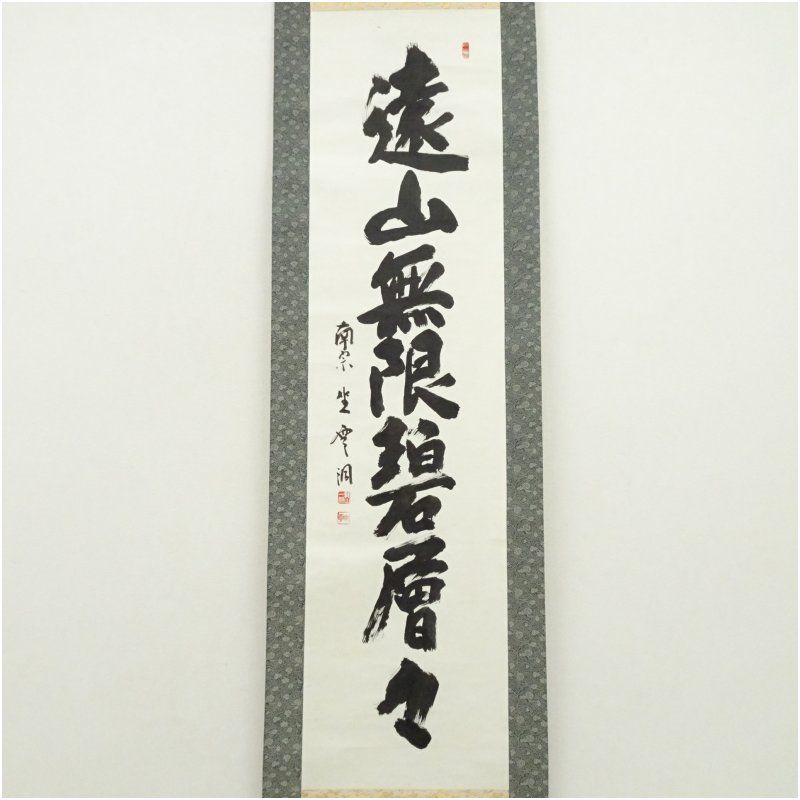 遠山無限碧層々
南宗 生雲洞